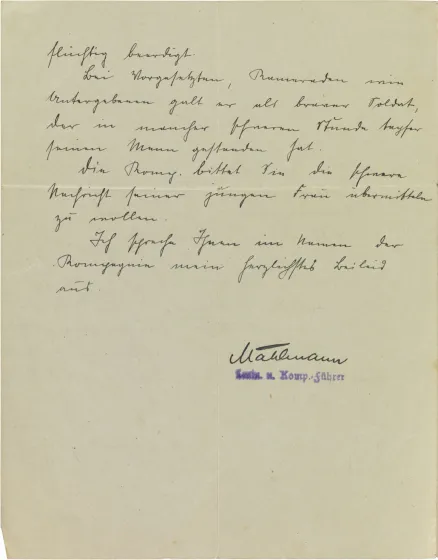 flüchtig beerdigt.
Bei Vorgesetzten, Kameraden wie
Untergebenen galt er als braver Soldat,
der in mancher schweren Stunde tapfer
seinen Mann gestanden hat.
Die Komp. bittet Sie die schwere
Nachricht seiner jungen Frau übermitteln
zu wollen.
Ich spreche Ihnen im Namen der
Kompagnie mein herzlichstes Beileid
aus.
Mahlmann
Leutn. u. Komp.-Führer